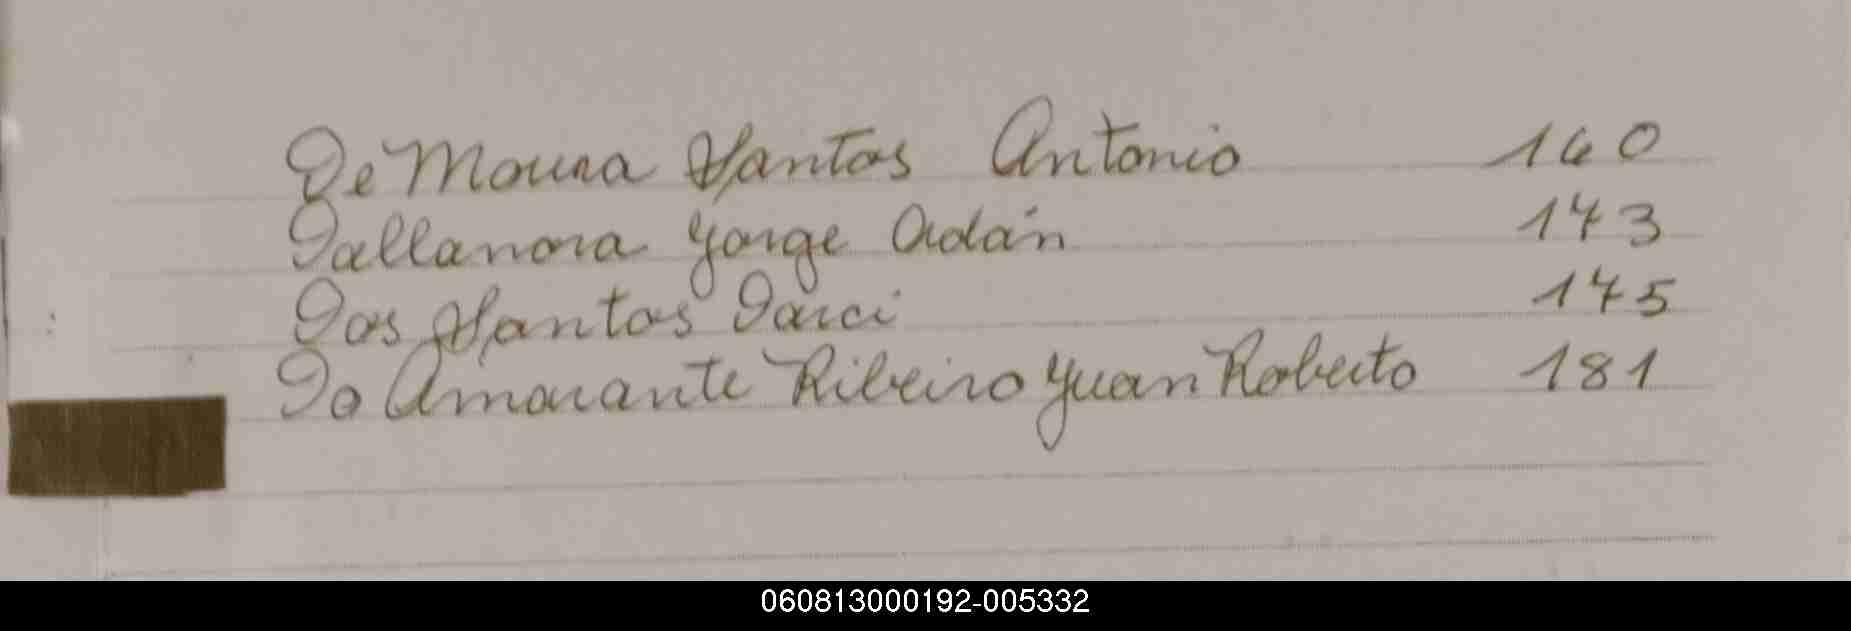 De Moura Santos Antonio 140
Dallanora Jorge Adán 143
Dos Santos Darci 145
Do Amarante Ribeiro Juan Roberto 181
060813000192-005332